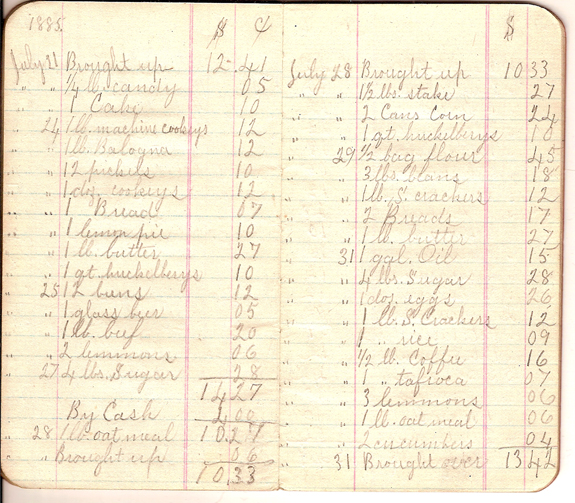 1885.
$ ¢
July 21 Brought up 12.41
" " 1/4 lb. candy 05
" " 1 Cake 10
" 24 1 lb. machine cookeys 12
" " 1 lb. Bologna 12
" " 12 pickels 10
" " 1 doz. cookeys 12
" " 1 Bread 07
" " 1 lemon pie 10
" " 1 lb. butter 27
" " 1 qt. huckelberys 10
" 25 12 buns 12
" " 1 glass beer 05
" " 1 lb. beef 20
" " 2 lemmons 06
" 27 4 lbs. Sugar 28
14 27
By Cash 4 00
" 28 1 lb. oat meal 10.27
" Brought up 06
10,33
$
July 28 Brought up 10 33
" " 1 1/2 lbs. stake 27
" " 2 Cans Corn 24
" " 1 qt huckelberys 10
" 29 1/2 bag flour 45
" " 3 lbs. beans 18
" " 1 lb. S. crackers 12
" " 2 Breads 17
" " 1 lb. butter 27
" 31 1 gal. Oil 15
" " 4 lbs. Sugar 28
" " 1 doz. eggs 26
" " 1 lb. S. Crackers 12
" " 1 " rice 09
" " 1/2 lb. Coffee 16
" " 1 " tafioca 07
" " 3 lemmons 06
" " 1 lb. oat meal 06
" " 2 cucumbers 04
" 31 Brought over 13 42